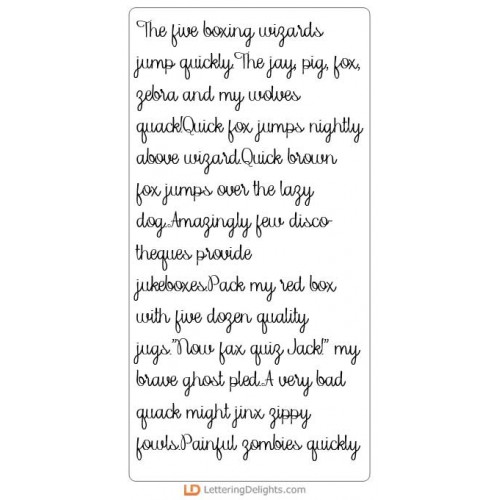 The five boxing wizards
jump quickly.The jay, pig, fox,
zebra and my wolves
quack!Quick fox jumps nightly
above wizard.Quick brown
fox jumps over the lazy
dog.Amazingly few disco-
theques provide
jukeboxes.Pack my red box
with five dozen quality
jugs."Now fax quiz Jack!" my
brave ghost pled.A very bad
quack might jinx zippy
fowls.Painful zombies quickly
LD LetteringDelights.com